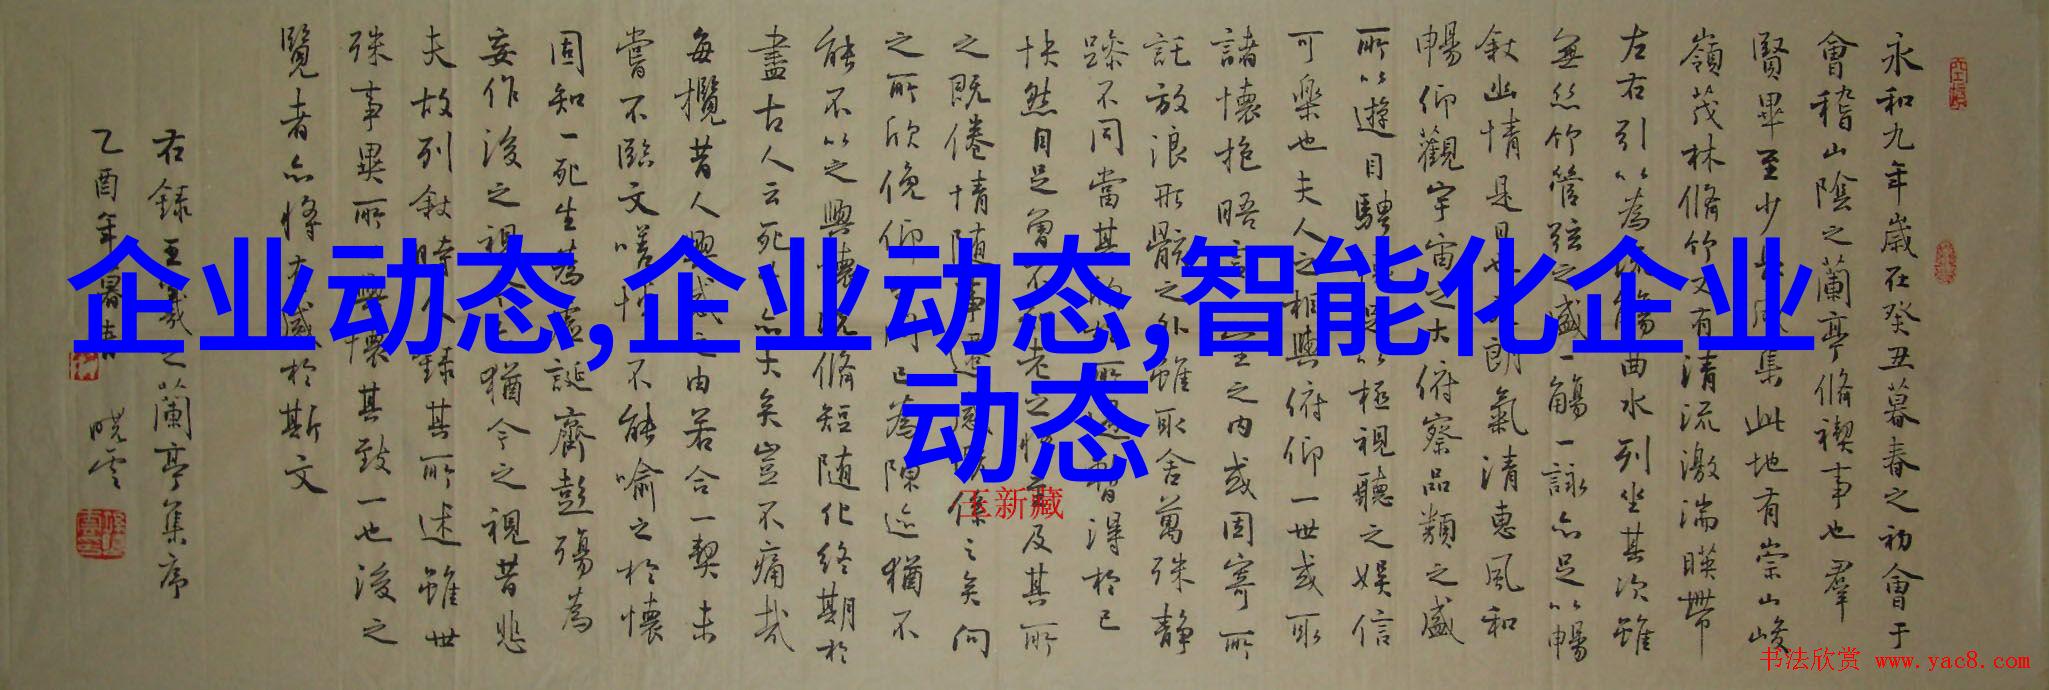 企业动态,企业动态,智能化企业
动态
永和九年歲在癸丑暮春之初會于
會稽山陰之蘭亭脩禊事也羣
賢畢至少長咸集此地有崇山峻
嶺茂林脩竹又有清流激湍暎帶
左右引以為觴曲水列坐其次雖
無丝竹管弦之盛一觴一詠亦足以暢
敘幽情是日也朗氣清惠風和
暢仰觀宇宙之大俯察品類之盛
所以遊目騁足以極視聽之娛信
可樂也夫人之相與俯仰一世或取
諸懷抱晤言室之内或因寄所
託放浪形骸之外雖取舍萬殊静
躁不同當其欣所暫得於己
快然自足曾不老之將及其所
之既倦情随事遷係之矣向
之所欣俛仰之间已為陳迹猶不
能不以之興懷况脩短随化终期於
盡古人云死亦大矣豈不痛哉
每攬昔人興感之由若合一契未
嘗不臨文嗟悼不能喻之於懷
固知一死生為虚誕齊彭殤為
妄作後之視猶今之視昔悲
夫故列敘時人録其所述雖世
殊事異所興懷其致一也後之
覽者亦將有感於斯文
右録王羲之蘭亭集序
乙酉年暑
曉雲
王新藏
书法欣赏 www.yac8.com